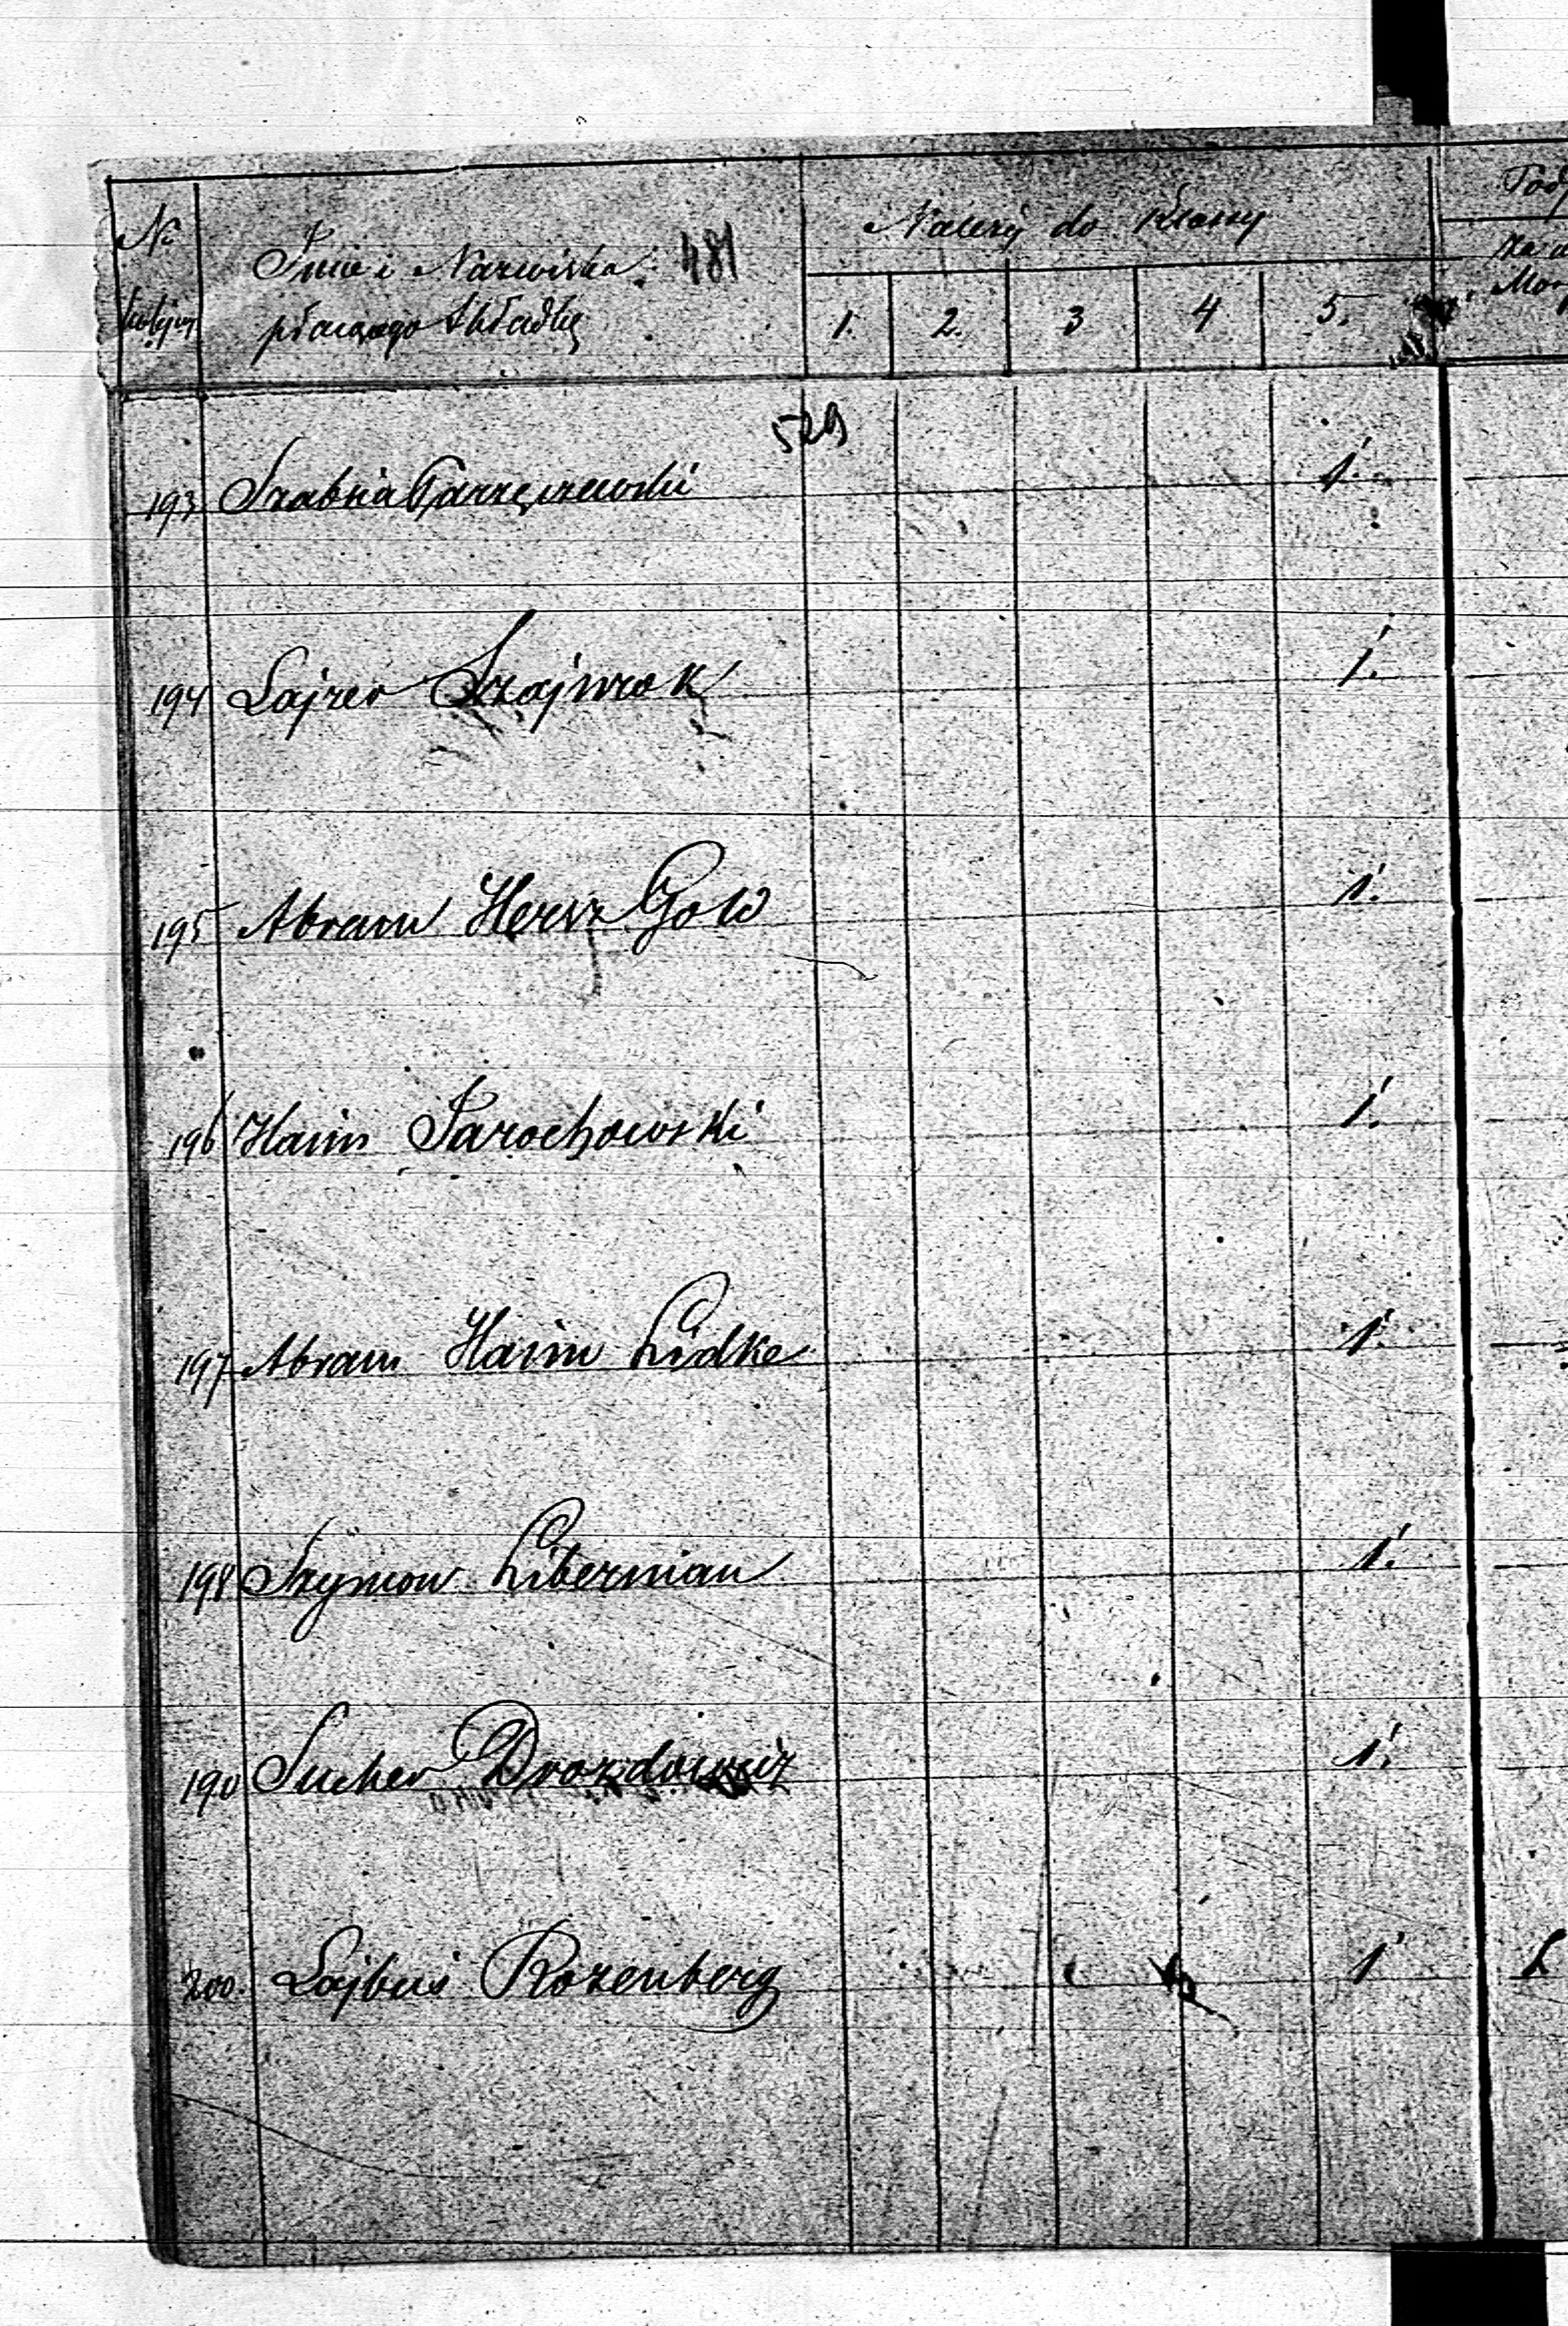 No kolejny
Imie i Nazwiska 481
płacącego Składkę
Należy do Klassy
1. 2. 3 4 5.
529
193 Szabsia Parzęczewski 1.
194 Lajzer Szajnrok 1.
195 Abram Hersz Gold 1.
196 Haim Sarochowski 1.
197 Abram Haim Lidke 1.
198 Szymon Liberman 1.
190 Sucher Drozdowicz 1.
200. Lajbuś Rozenberg 1